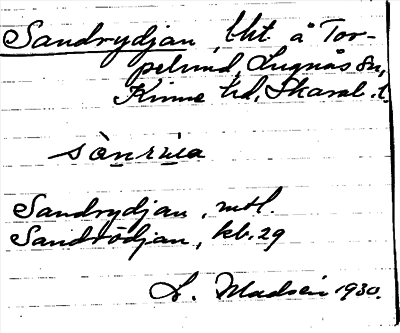 Sandrydjan, bht. å Tor-
pelund, Lugnås sn,
Kinne hd, Skarab. l.
sànrùɩa
Sandrydjan, mtl.
Sandrödjan, kb. 29
L. Madsén 1930.